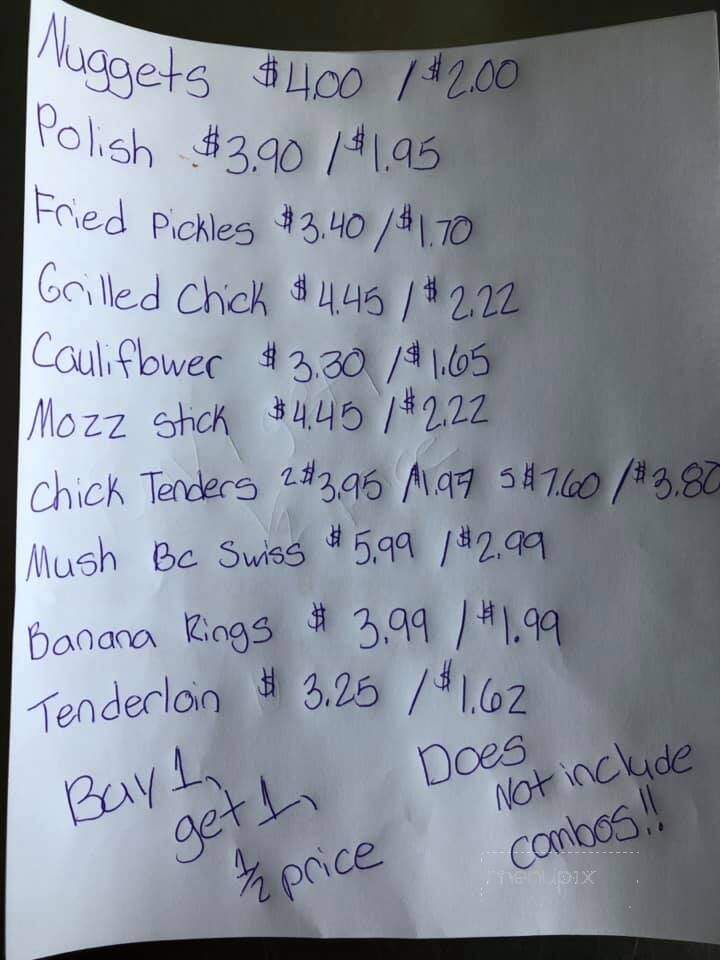 Nuggets $4.00 / $2.00
Polish $3.90 / $1.95
Fried Pickles $3.40 / $1.70
Grilled Chick $4.45 / $2.22
Cauliflower $3.30 / $1.65
Mozz Stick $4.45 / $2.22
Chick Tenders 2 $3.95 / $1.97 5 $7.60 / $3.80
Mush Bc Swiss $5.99 / $2.99
Banana Rings $3.99 / $1.99
Tenderloin $3.25 / $1.62
Buy 1,
get 1,
1/2 price
Does
Not include
combos!!
menupix